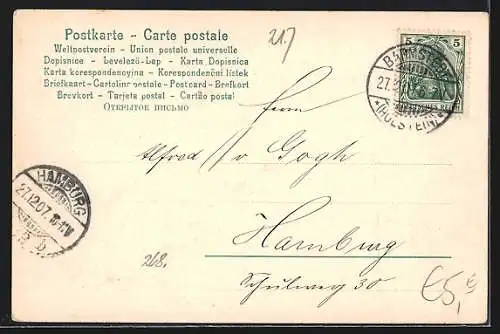 Postkarte - Carte postale
Weltpostverein - Union postale universelle
Dopisnice - Levelező-Lap - Karta Dopisnica
Karta korespondencyjna - Korespondenční lístek
Briefkaart - Cartolina postale - Postcard - Brefkort
Brevkort - Tarjeta postal - Cartão postal
ОТКРЫТОЕ ПИСЬМО
217
5 5
27.
*(HOLSTEIN)*
Alfred v Gogh
HAMBURG
27.12.07.
Hamburg
268.
Schulweg 30
€5,-